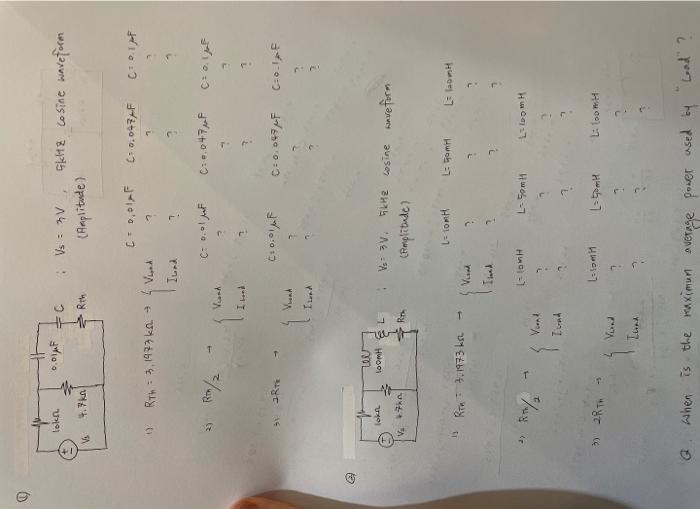 ①
10kΩ 0.01μF C : Vs = 3V, 5kHz cosine waveform
Vs 4.7kΩ Rth (Amplitude)
C = 0.01μF C = 0.047μF C = 0.1μF
1) RTH = 3.1973kΩ → { Vload ? ? ?
Iload ? ? ?
C = 0.01μF C = 0.047μF C = 0.1μF
2) RTH/2 → { Vload ? ? ?
Iload ? ? ?
C = 0.01μF C = 0.047μF C = 0.1μF
3) 2RTH → { Vload ? ? ?
Iload ? ? ?
②
10kΩ 100mH L : Vs = 3V, 5kHz cosine waveform
Vs 4.7kΩ Rth (Amplitude)
L = 10mH L = 50mH L = 100mH
1) RTH = 3.1973kΩ → { Vload ? ? ?
Iload ? ? ?
L = 10mH L = 50mH L = 100mH
2) RTH/2 → { Vload ? ? ?
Iload ? ? ?
L = 10mH L = 50mH L = 100mH
3) 2RTH → { Vload ? ? ?
Iload ? ? ?
Q. When is the maximum average power used by "Load"?